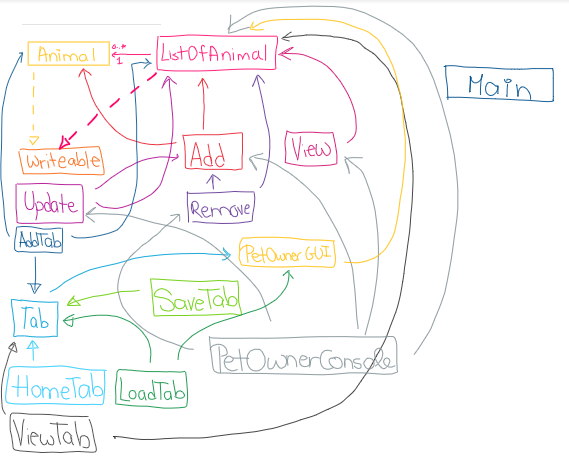 Animal
0..*
1
ListOfAnimal
Main
Writeable
Add
View
Update
Remove
AddTab
PetOwnerGUI
SaveTab
Tab
PetOwnerConsole
HomeTab
LoadTab
ViewTab